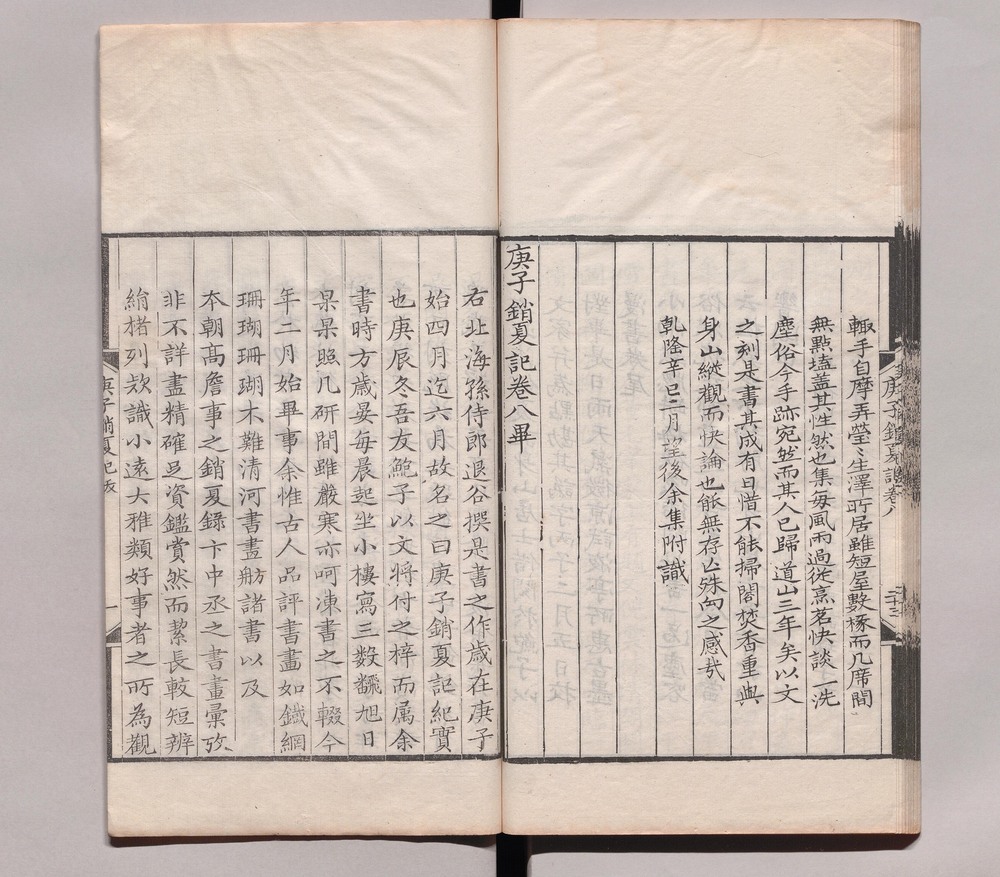 輙手自摩弄瑩〻生澤所居雖短屋數椽而几席間
無㸃塧蓋其性然也集每風雨過從烹茗快談一洗
塵俗今手跡宛然而其人已歸道山三年矣以文
之刻是書其成有日惜不能掃閣焚香重與
身山縱觀而快論也能無存亾殊向之感㢤
乾隆辛巳二月望後余集附識
庚子銷夏記卷八畢
庚子銷夏記卷八
二十三
右北海孫侍郎退谷撰是書之作歳在庚子
始四月迄六月故名之曰庚子銷夏記紀實
也庚辰冬吾友鮑子以文將付之梓而屬余
書時方歳晏每晨起坐小樓寫三数飜旭日
杲杲照几研間雖嚴寒亦呵凍書之不輟今
年二月始畢事余惟古人品評書畫如鐵網
珊瑚珊瑚木難清河書畫舫諸書以及
本朝高詹事之銷夏錄卞中丞之書畫彙攷
非不詳盡精確𠯁資鑑賞然而絜長較短辨
絹楮列欵識小遠大雅類好事者之所為觀
庚子銷夏記跋
一